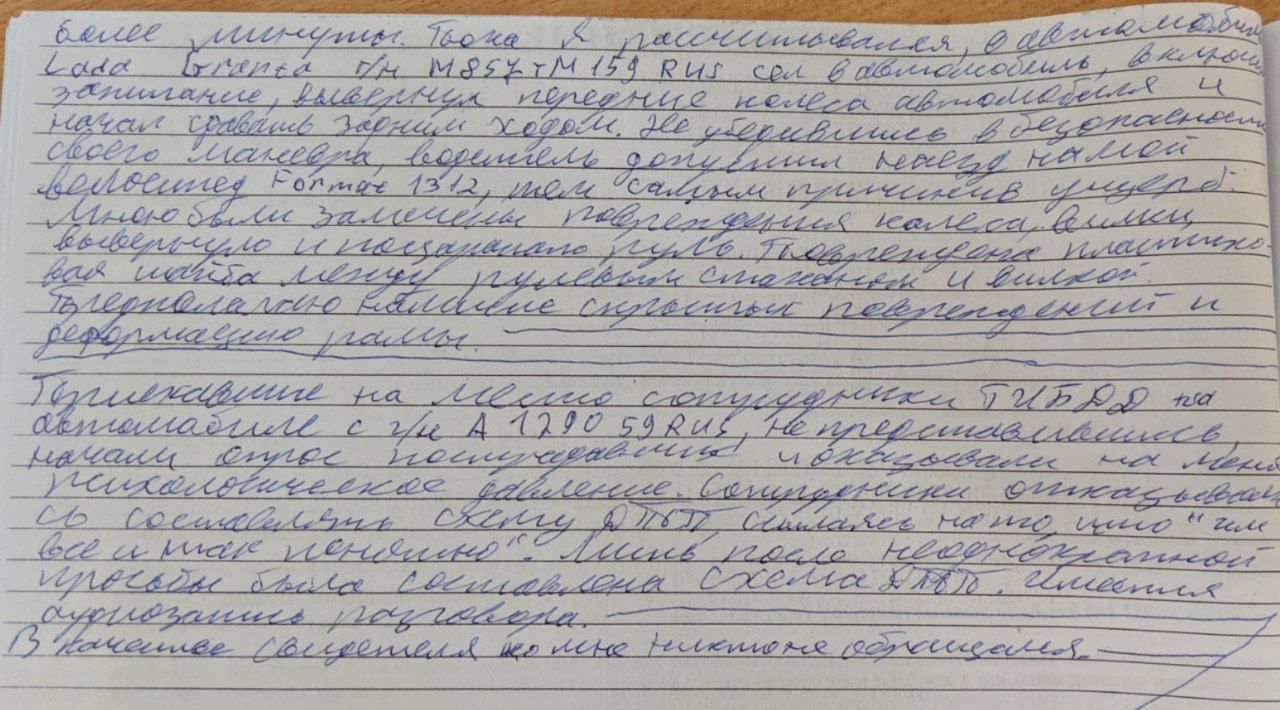 более минуты. Пока я рассчитывался, в автомобиль
Lada Granta г/н М857тМ 159 RUS сел в автомобиль, включил
зажигание, вывернул передние колеса автомобиля и
начал сдавать задним ходом. Не убедившись в безопасности
своего маневра, водитель допустил наезд на мой
велосипед Format 1312, тем самым причинив ущерб.
Мною были замечены повреждения колеса, вилки,
вывернуло и поцарапало руль. Повреждена пластико-
вая шайба между рулевым стаканом и вилкой.
Предполагаю наличие скрытых повреждений и
деформацию рамы.
Приехавшие на место сотрудники ГИБДД на
автомобиле с г/н А 1290 59 RUS, не представившись,
начали опрос пострадавших и оказывали на меня
психологическое давление. Сотрудники отказывали
сь составлять схему ДТП, ссылаясь на то, что "им
все и так понятно". Лишь после неоднократной
просьбы была составлена схема ДТП. Имеется
аудиозапись разговора.
В качестве свидетеля ко мне никто не обращался.